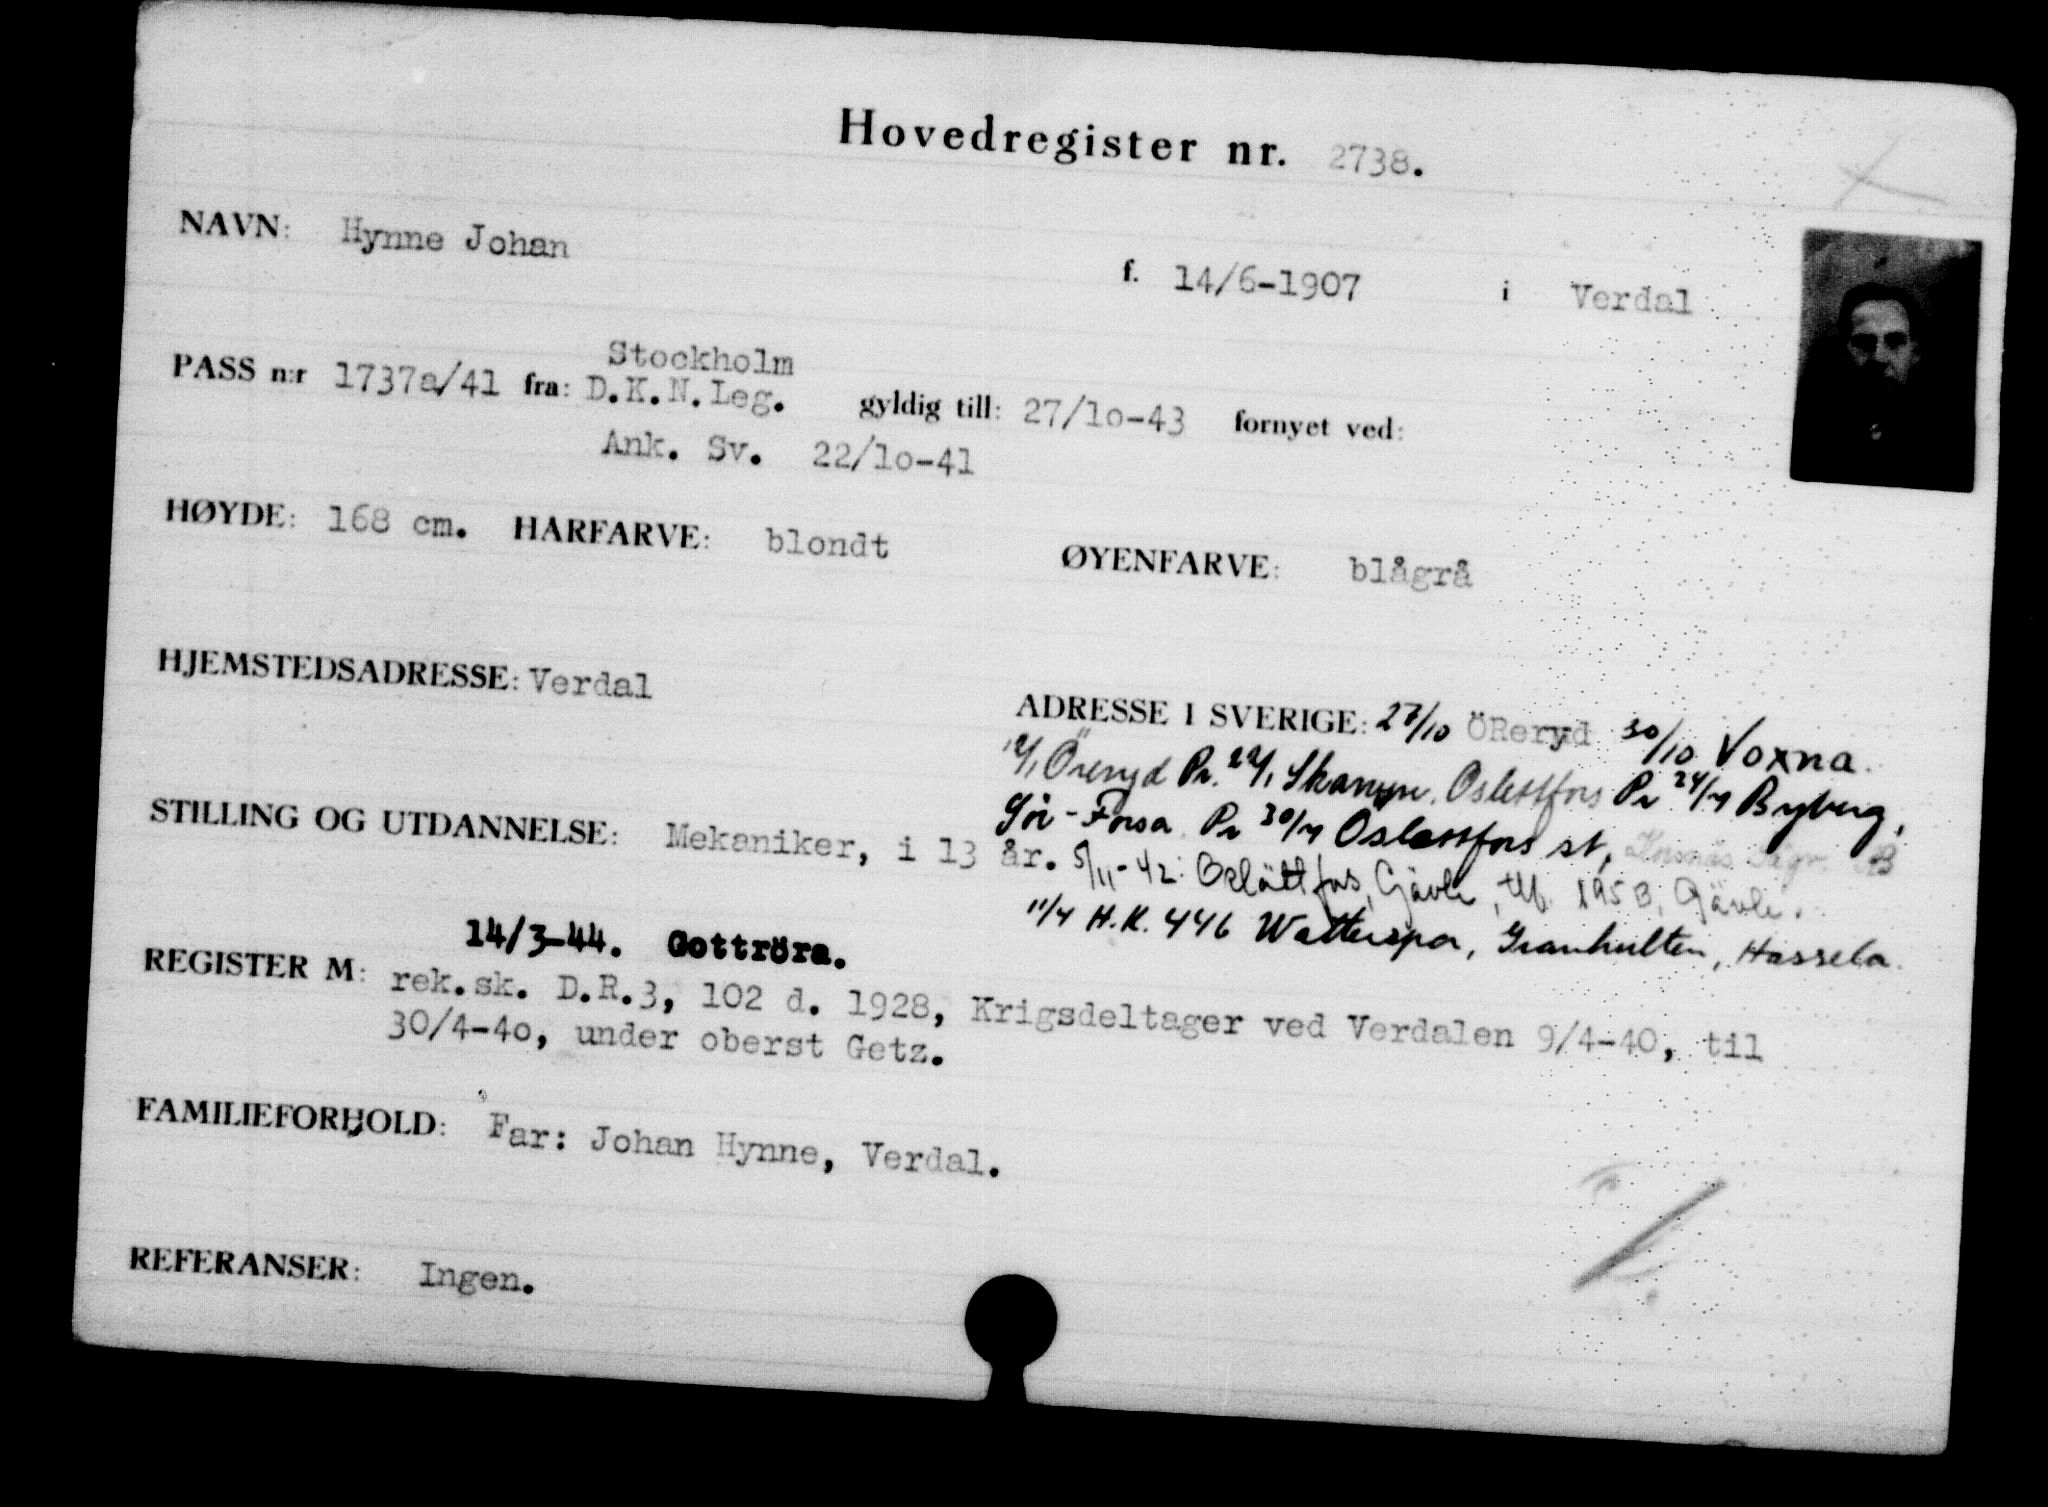 Hovedregister nr. 2738.
NAVN: Hynne Johan f. 14/6-1907 i Verdal
Stockholm
PASS n:r 1737a/41 fra: D.K.N.Leg. gyldig till: 27/10-43 fornyet ved:
Ank. Sv. 22/10-41
HØYDE: 168 cm. HARFARVE: blondt ØYENFARVE: blågrå
HJEMSTEDSADRESSE: Verdal
ADRESSE I SVERIGE: 27/10 ÖReryd 30/10 Voxna.
Öreryd Pr. 22/1 Oslettfors Pr 24/4 Byberg,
Sör-Forsa. Pr 30/4 Oslettfors st,
STILLING OG UTDANNELSE: Mekaniker, i 13 år.
5/11-42: Oslättfors, Gävle, tlf. 1953, Gävle.
11/4 H.K. 446 Granhulten, Hassela.
14/3-44. Gottröra.
REGISTER M: rek.sk. D.R.3, 102 d. 1928, Krigsdeltager ved Verdalen 9/4-40, til
30/4-40, under oberst Getz.
FAMILIEFORHOLD: Far: Johan Hynne, Verdal.
REFERANSER: Ingen.